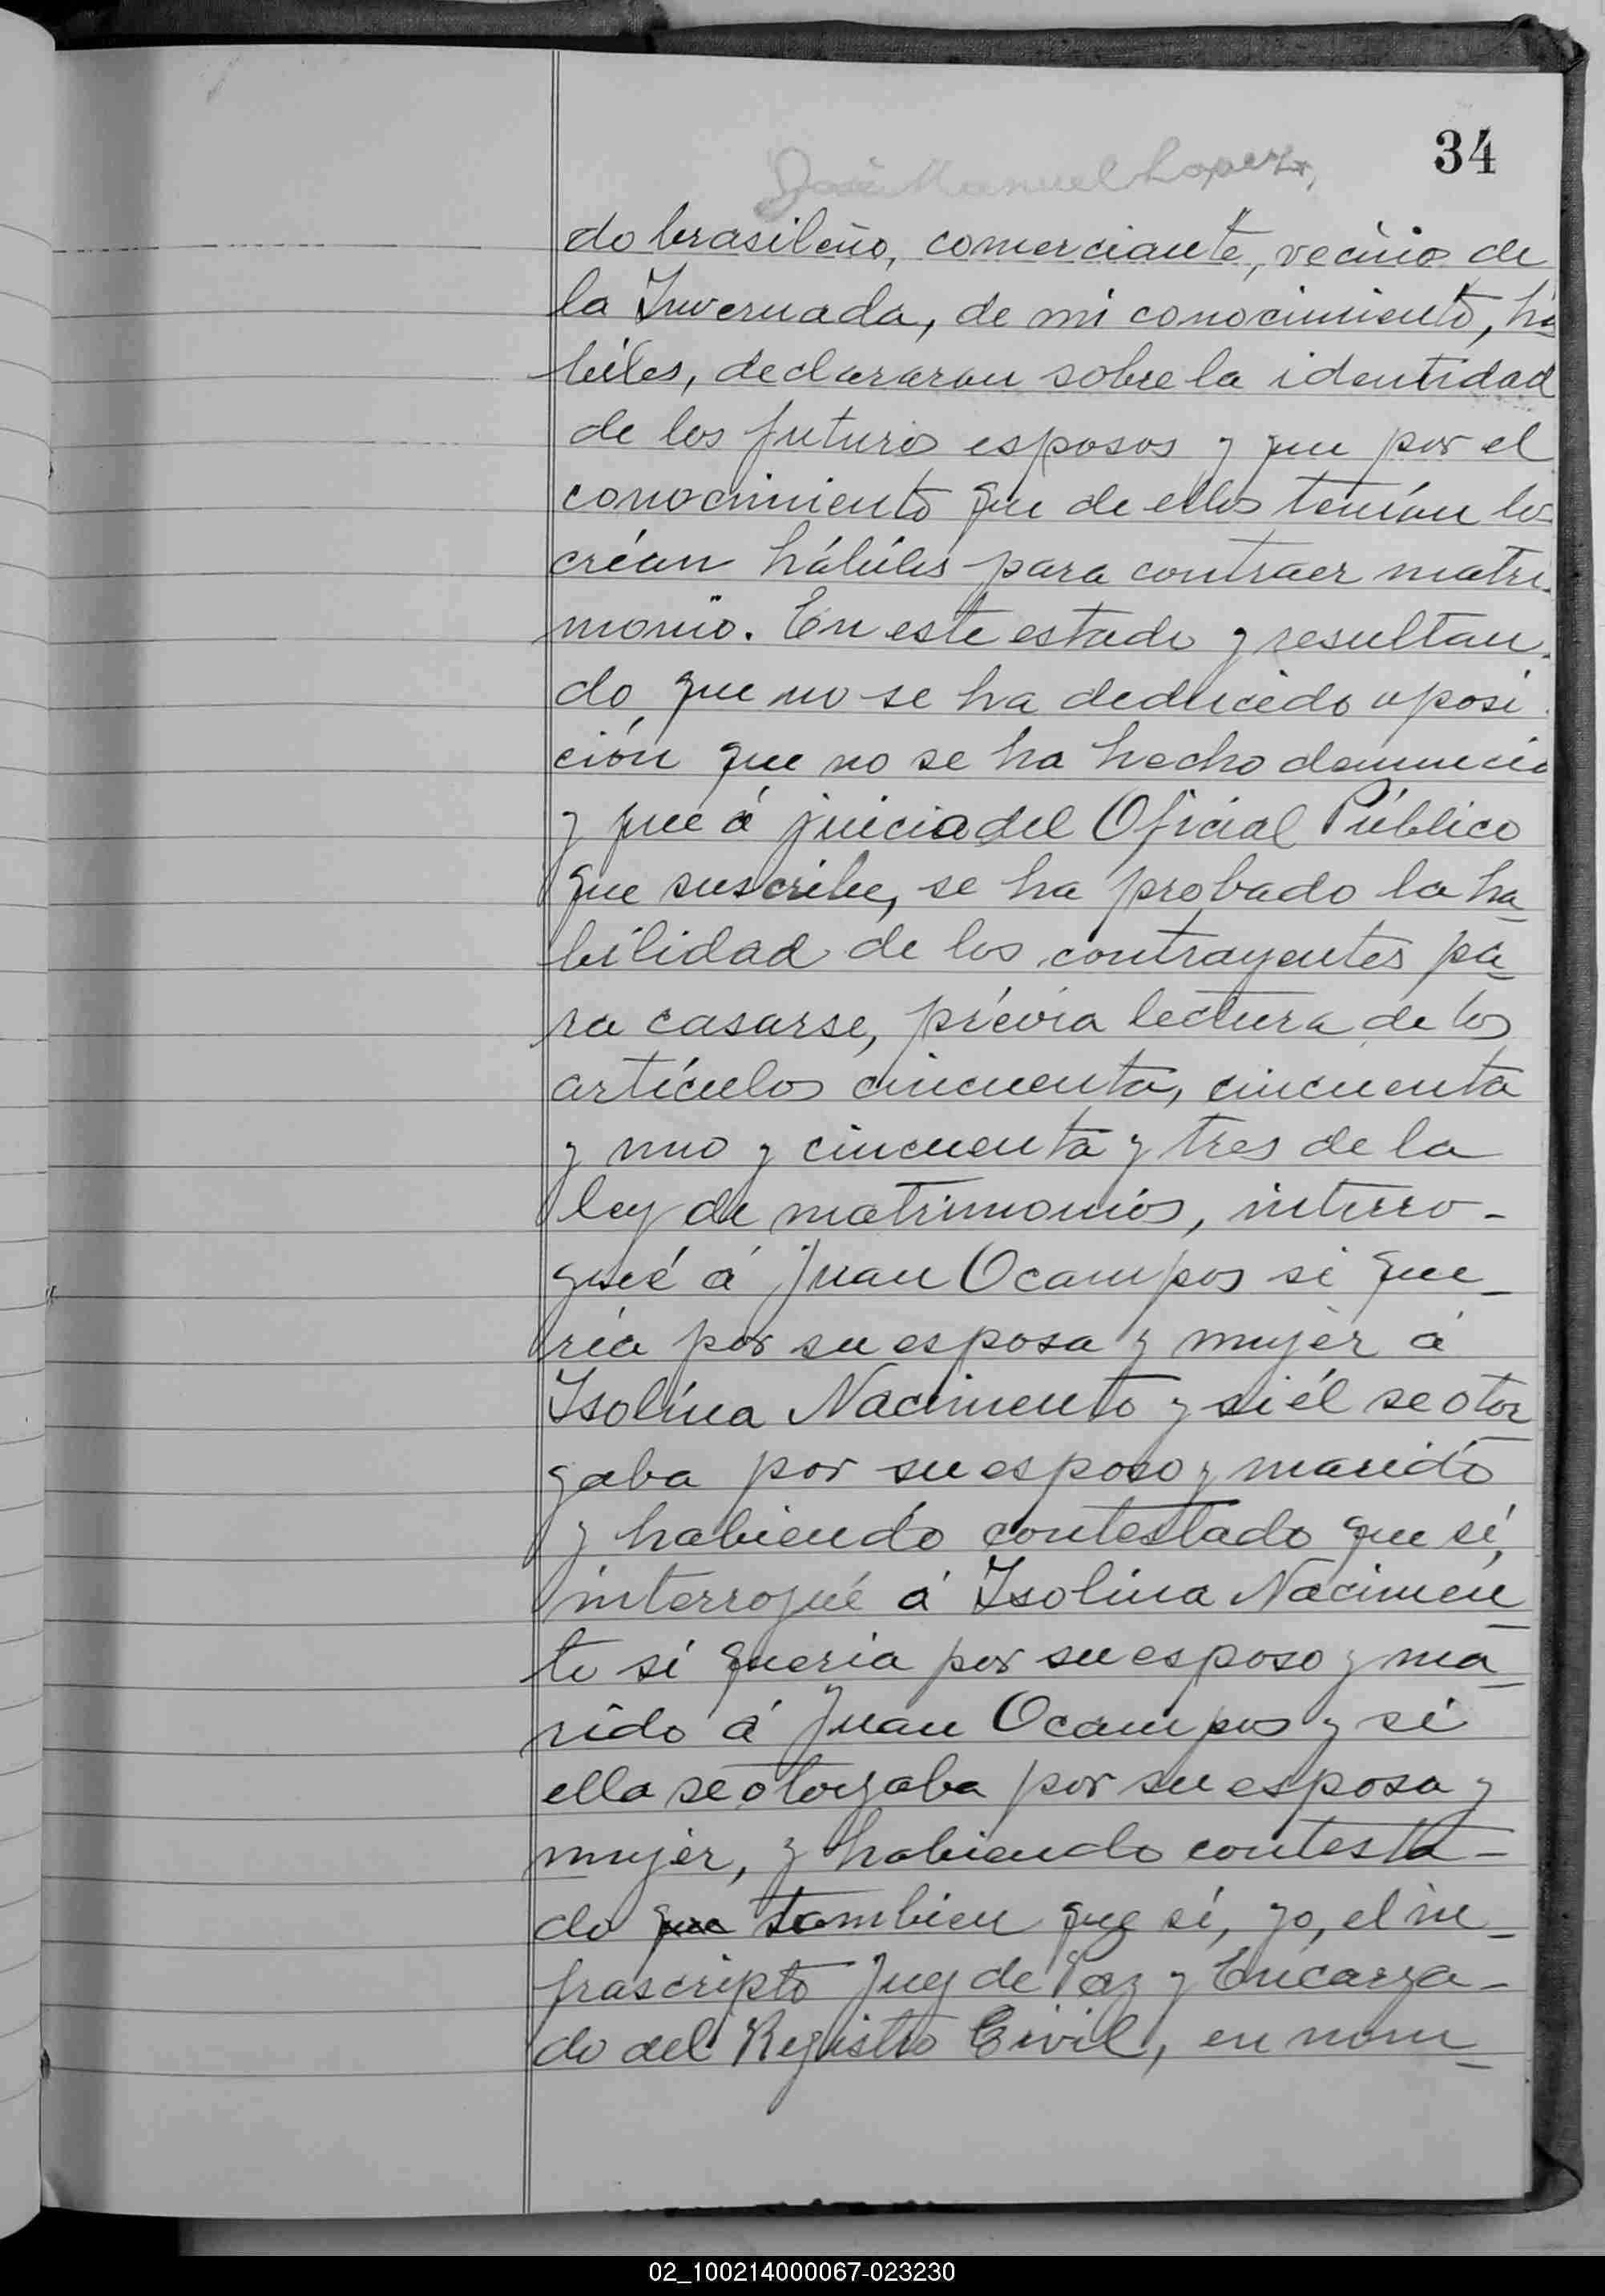 34
José Manuel Lopez
do brasileño, comerciante, vecino de
la Invernada, de mi conocimiento, há
biles, declararon sobre la identidad
de los futuros esposos y que por el
conocimiento que de ellos tenían los
créian hábiles para contraer matri-
monio. En este estado y resultan-
do que no se ha deducido oposi-
ción que no se ha hecho denuncia
y que á juicio del Oficial Público
que suscribe, se ha probado la ha-
bilidad de los contrayentes pa-
ra casarse, prévia lectura de los
artículos cincuenta, cincuenta
y uno y cincuenta y tres de la
ley de matrimonios, interro-
gué á Juan Ocampos si que-
ria por su esposa y mujer á
Isolina Nacimento y si él se otor
gaba por su esposo y marido
y habiendo contestado que sí,
interrogué á Isolina Nacimen-
to si queria por su esposo y ma-
rido á Juan Ocampos y si
ella se otorgaba por su esposa y
mujer, y habiendo contesta-
do que tambien que sí, yo, el in-
frascripto Juez de Paz y Encarga-
do del Registro Civil, en nom-
02_100214000067-023230